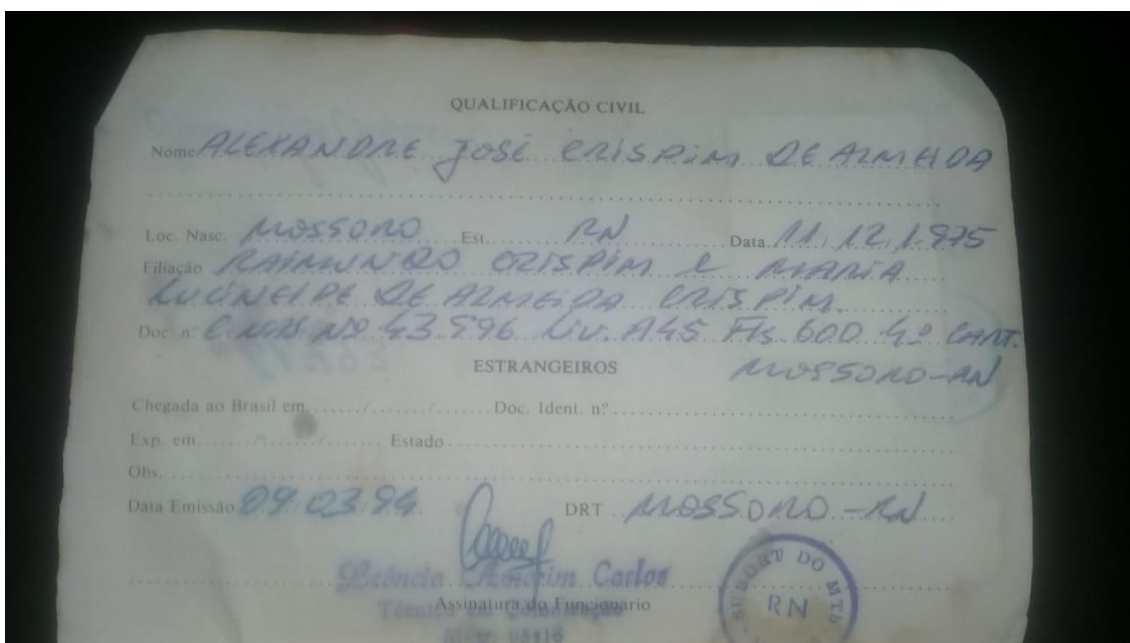 QUALIFICAÇÃO CIVIL
Nome ALEXANDRE JOSÉ CRISPIM DE ALMEIDA
Loc. Nasc. MOSSORO Est. RN Data 11.12.1.975
Filiação RAIMUNDO CRISPIM e MARIA
LUCINEIDE DE ALMEIDA CRISPIM.
Doc. nº C. NAS Nº 43.596 Liv. A45 Fls. 600 4º CART.
MOSSORO-RN
ESTRANGEIROS
Chegada ao Brasil em / / Doc. Ident. nº
Exp. em / / Estado
Obs.
Data Emissão 09.03.94 DRT MOSSORO-RN
Amorim Carlos
Assinatura do Funcionário
SUBDRT DO MTb
RN